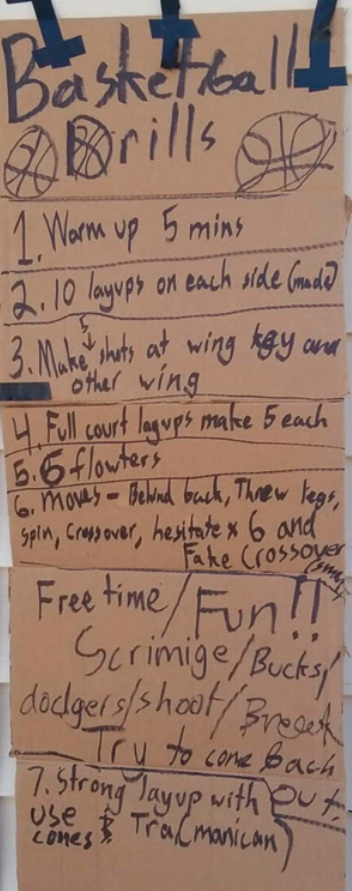 Basketball
Drills
1. Warm up 5 mins
2. 10 layups on each side (made)
5
3. Make shots at wing key and
other wing
4. Full court layups make 5 each
5. 6 flowters
6. Moves - Behind back, Threw legs,
spin, crossover, hesitate x 6 and
Fake Crossover
Free time/Fun!!
Scrimige/Bucks/
dodgers/shoot/
Try to come back
7. Strong layup with out
use
cones & Tra(manican)